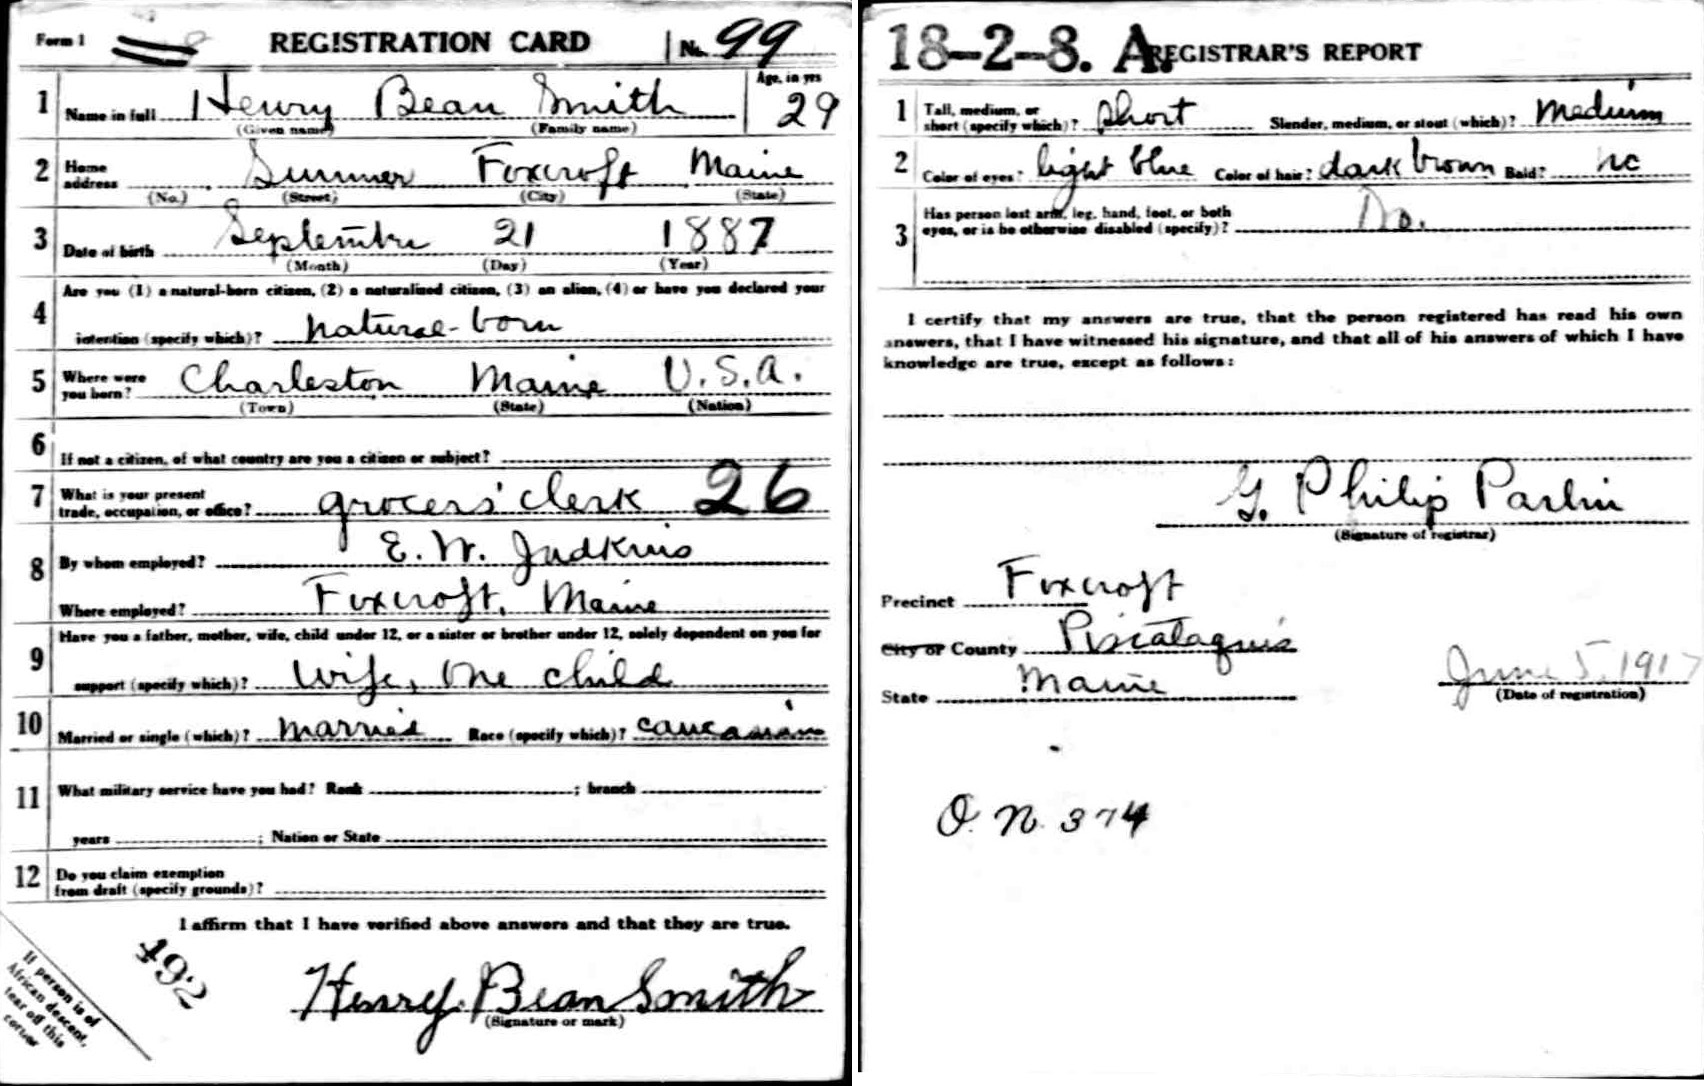 Form 1 REGISTRATION CARD No. 99
1 Name in full Henry Bean Smith Age, in yrs 29
(Given name) (Family name)
2 Home address Summer Foxcroft Maine
(No.) (Street) (City) (State)
3 Date of birth September 21 1887
(Month) (Day) (Year)
4 Are you (1) a natural-born citizen, (2) a naturalized citizen, (3) an alien, (4) or have you declared your
intention (specify which)? natural-born
5 Where were you born? Charleston Maine U.S.A.
(Town) (State) (Nation)
6 If not a citizen, of what country are you a citizen or subject?
7 What is your present
trade, occupation, or office? grocers' clerk 26
8 By whom employed? E. W. Judkins
Where employed? Foxcroft, Maine
9 Have you a father, mother, wife, child under 12, or a sister or brother under 12, solely dependent on you for
support (specify which)? Wife, One child
10 Married or single (which)? Married Race (specify which)? Caucasian
11 What military service have you had? Rank ; branch
years ; Nation or State
12 Do you claim exemption
from draft (specify grounds)?
I affirm that I have verified above answers and that they are true.
492
Henry Bean Smith
(Signature or mark)
If person is of
African descent,
tear off this
corner
18-2-8. A. REGISTRAR'S REPORT
1 Tall, medium, or
short (specify which)? Short Slender, medium, or stout (which)? Medium
2 Color of eyes? light blue Color of hair? dark brown Bald? no
3 Has person lost arm, leg, hand, foot, or both
eyes, or is he otherwise disabled (specify)? No.
I certify that my answers are true, that the person registered has read his own
answers, that I have witnessed his signature, and that all of his answers of which I have
knowledge are true, except as follows:
G. Philip Parlin
(Signature of registrar)
Precinct Foxcroft
City or County Piscataquis
State Maine
June 5, 1917
(Date of registration)
O. N. 374